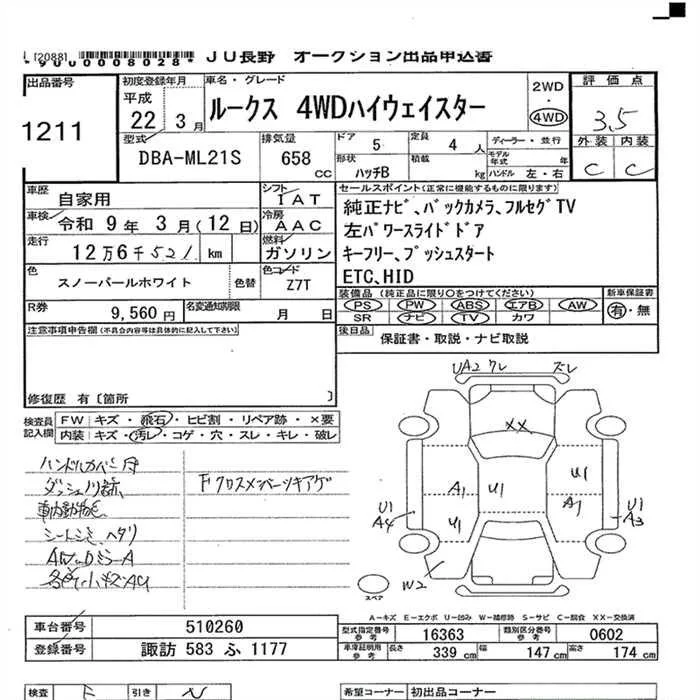 [2088]
*9UU0008028*
JU長野 オークション出品申込書
出品番号
1211
初度登録年月
平成
22 3月
車名・グレード
ルークス 4WDハイウェイスター
2WD
・
4WD
評価点
3.5
外装 内装
C C
型式
DBA-ML21S
排気量
658 CC
ドア 5
定員 4 人
形状 ハッチB
積載 kg
ディーラー・並行
モデル年式 年
ハンドル 左・右
車歴 自家用
車検 令和 9年 3月(12日)
走行 12万6千521 km
シフト IAT
冷房 AAC
燃料 ガソリン
色 スノーパールホワイト
色替
色コード Z7T
R券 9,560円
名変通知期限 月 日
セールスポイント(正常に機能するものに限ります)
純正ナビ、バックカメラ、フルセグTV
左パワースライドドア
キーフリー、プッシュスタート
ETC、HID
装備品 (純正品に限り○をつけてください)
PS PW ABS エアB AW
SR ナビ TV カワ
新車保証書
有・無
後日品 保証書・取説・ナビ取説
注意事項申告欄(不具合内容等は具体的に記入して下さい)
修復歴 有〔箇所 〕
検査員記入欄
FW キズ・飛石・ヒビ割・リペア跡・×要
内装 キズ・汚レ・コゲ・穴・スレ・キレ・破レ
ハンドルカバー付
ダッシュノリ跡
シートシミ、ヘタリ
各所小キズAU
Fクロスメンバーツキアゲ
UA2 ワレ ズレ
XX
A1 U1 U1 A1
U1
U1 A4
U1 A3
W2
スペア
A-キズ E-エクボ U-凹み W-補修跡 S-サビ C-腐食 XX-交換済
車台番号 510260
登録番号 諏訪 583 ふ 1177
型式指定番号 参考 16363
類別区分番号 参考 0602
車庫証明用 参考 長さ 339cm 幅 147cm 高さ 174cm
検査
引き
希望コーナー 初出品コーナー